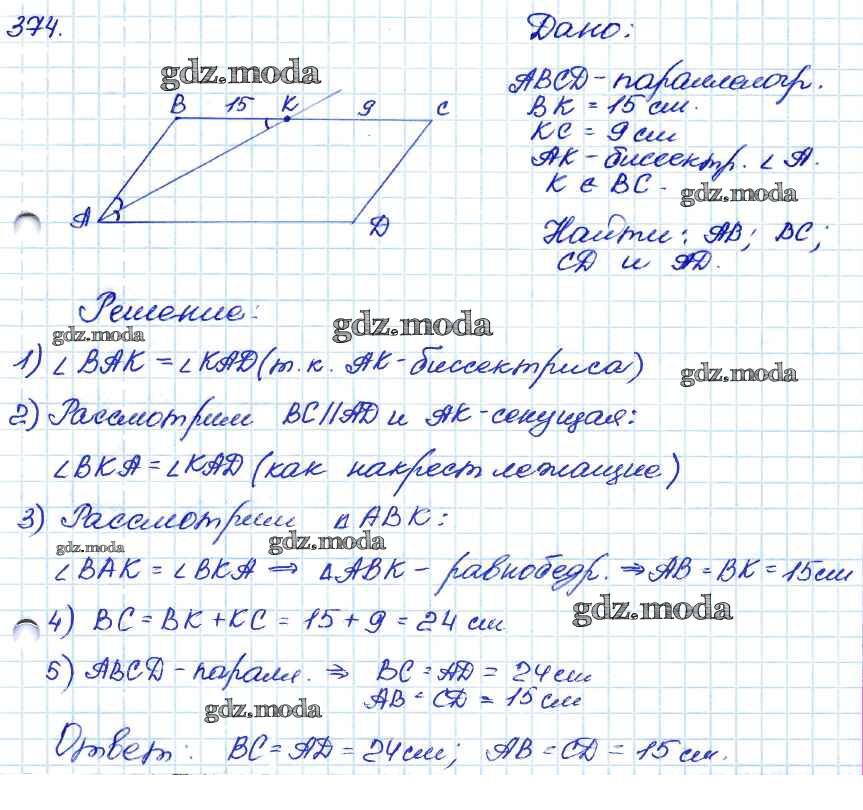 374.
Дано:
gdz.moda
ABCD - параллелогр.
B 15 K 9 C
BK = 15 см.
KC = 9 см
AK - биссектр. ∠ A.
K ∈ BC.
gdz.moda
A D
Найти: AB; BC;
CD и AD.
Решение:
gdz.moda
gdz.moda
1) ∠ BAK = ∠ KAD (т.к. AK - биссектриса)
gdz.moda
2) Рассмотрим BC || AD и AK - секущая:
∠ BKA = ∠ KAD (как накрест лежащие)
3) Рассмотрим △ ABK:
gdz.moda
gdz.moda
∠ BAK = ∠ BKA ⇒ △ ABK - равнобедр. ⇒ AB = BK = 15 см
gdz.moda
4) BC = BK + KC = 15 + 9 = 24 см
5) ABCD - паралл. ⇒ BC = AD = 24 см
AB = CD = 15 см
gdz.moda
Ответ: BC = AD = 24 см; AB = CD = 15 см.